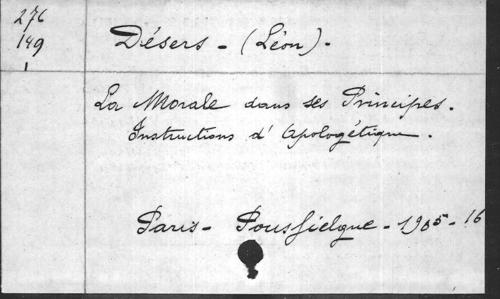 276
149
1
Désers - (Léon).
La Morale dans ses Principes.
Instructions d'Apologétique.
Paris - Poussielgue - 1905 - 16